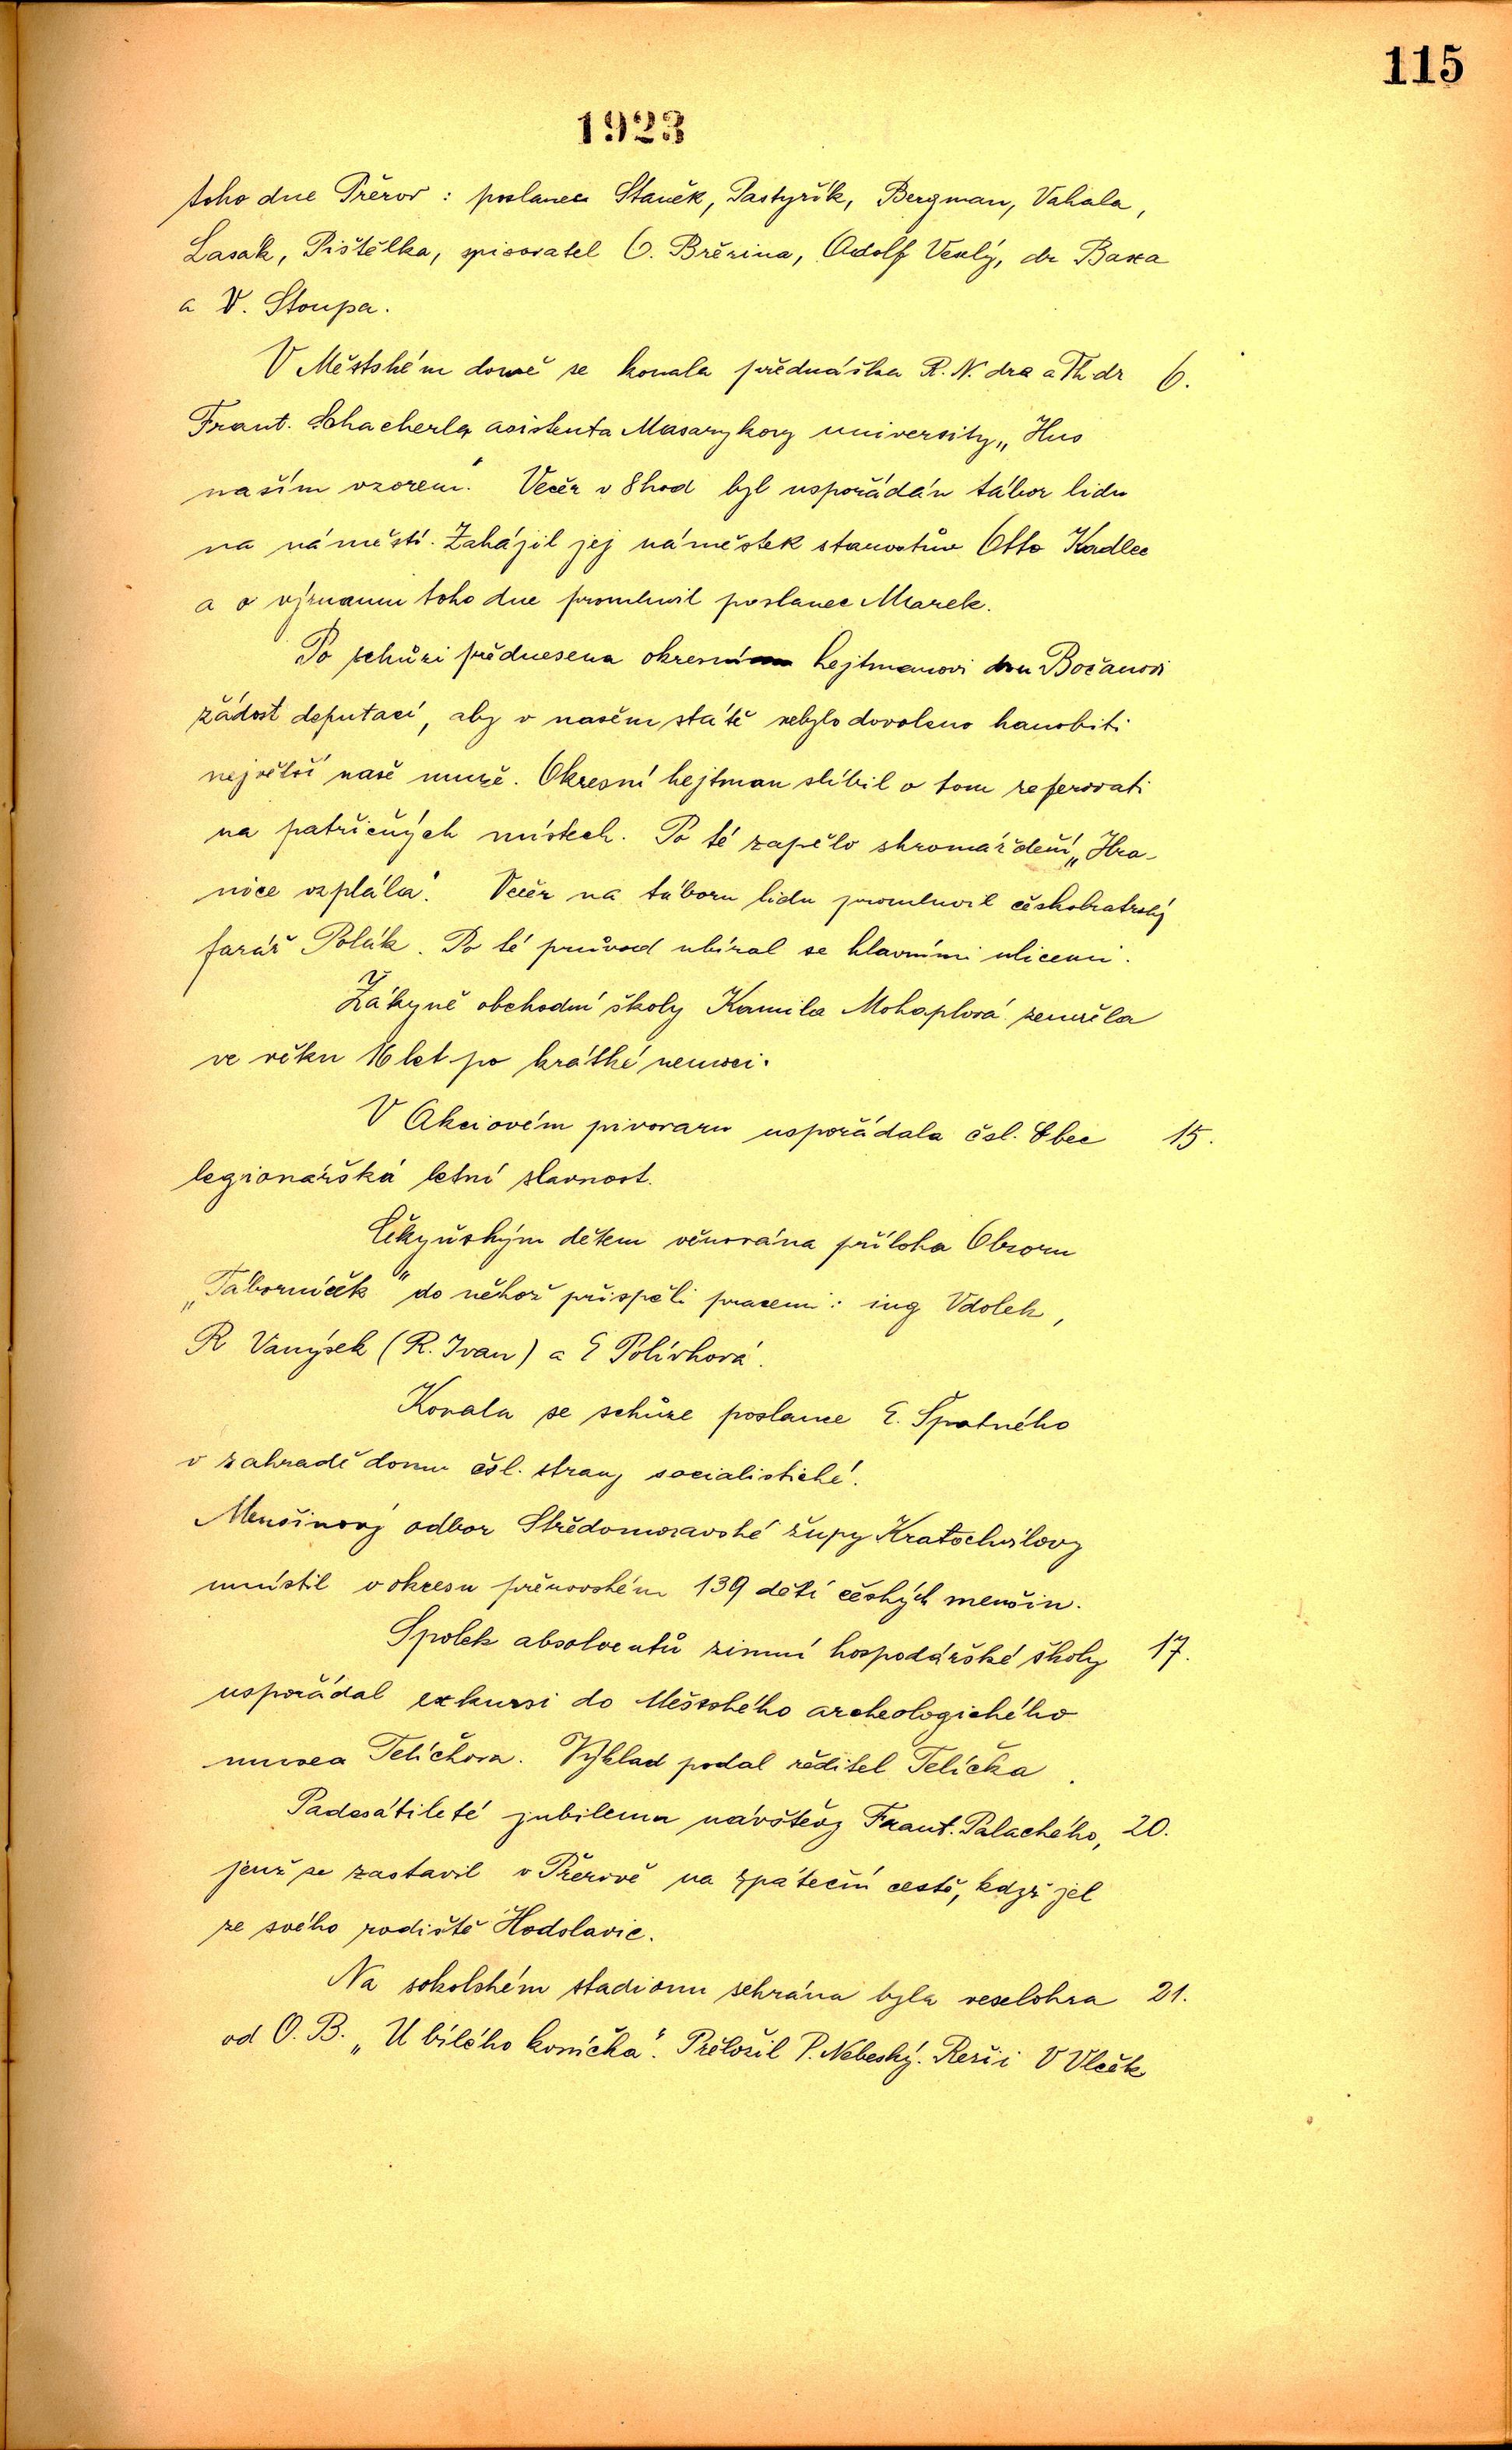 115
1923
toho dne Přerov: poslanec Staněk, Pastyřík, Bergman, Vahala,
Lasák, Pištělka, spisovatel O. Březina, Adolf Veselý, dr Baxa
a V. Stoupa.
V Městském domě se konala přednáška R. N. dra a Th. dr 6.
Frant. Schacherla asistenta Masarykovy university „Hus
naším vzorem". Večer v 8 hod byl uspořádán tábor lidu
na náměstí. Zahájil jej náměstek starostův Otto Kadlec
a o významu toho dne promluvil poslanec Marek.
Po schůzi přednesena okresní hejtmanovi dru Bočanovi
žádost deputací, aby v našem státě nebylo dovoleno hanobiti
největší naše muže. Okresní hejtman slíbil o tom referovati
na patřičných místech. Po té zapělo shromáždění „Hra-
nice vzplála". Večer na táboru lidu promluvil českobratrský
farář Polák. Po té průvod ubíral se hlavními ulicemi.
Žákyně obchodní školy Kamila Mohaplová zemřela
ve věku 16 let po krátké nemoci.
V Akciovém pivovaru uspořádala čsl. Obec 15.
legionářská letní slavnost.
Čekyňským dětem věnována příloha Obzoru
„Táborníček" do něhož přispěli pracemi: ing Vdolek,
R Vanýsek (R. Ivan) a E Polívková.
Konala se schůze poslance E. Špatného
v zahradě domu čsl. strany socialistické.
Menšinový odbor Středomoravské župy Kratochvílovy
umístil v okresu přerovském 139 dětí českých menšin.
Spolek absolventů zimní hospodářské školy 17.
uspořádal exkursi do Městského archeologického
musea Teličkova. Výklad podal ředitel Telička.
Padesátileté jubileum návštěvy Frant. Palackého, 20.
jenž se zastavil v Přerově na zpáteční cestě, když jel
ze svého rodiště Hodslavic.
Na sokolském stadionu sehrána byla veselohra 21.
od O. B. „U bílého koníčka". Přeložil P. Nebeský. Režii V Vlček